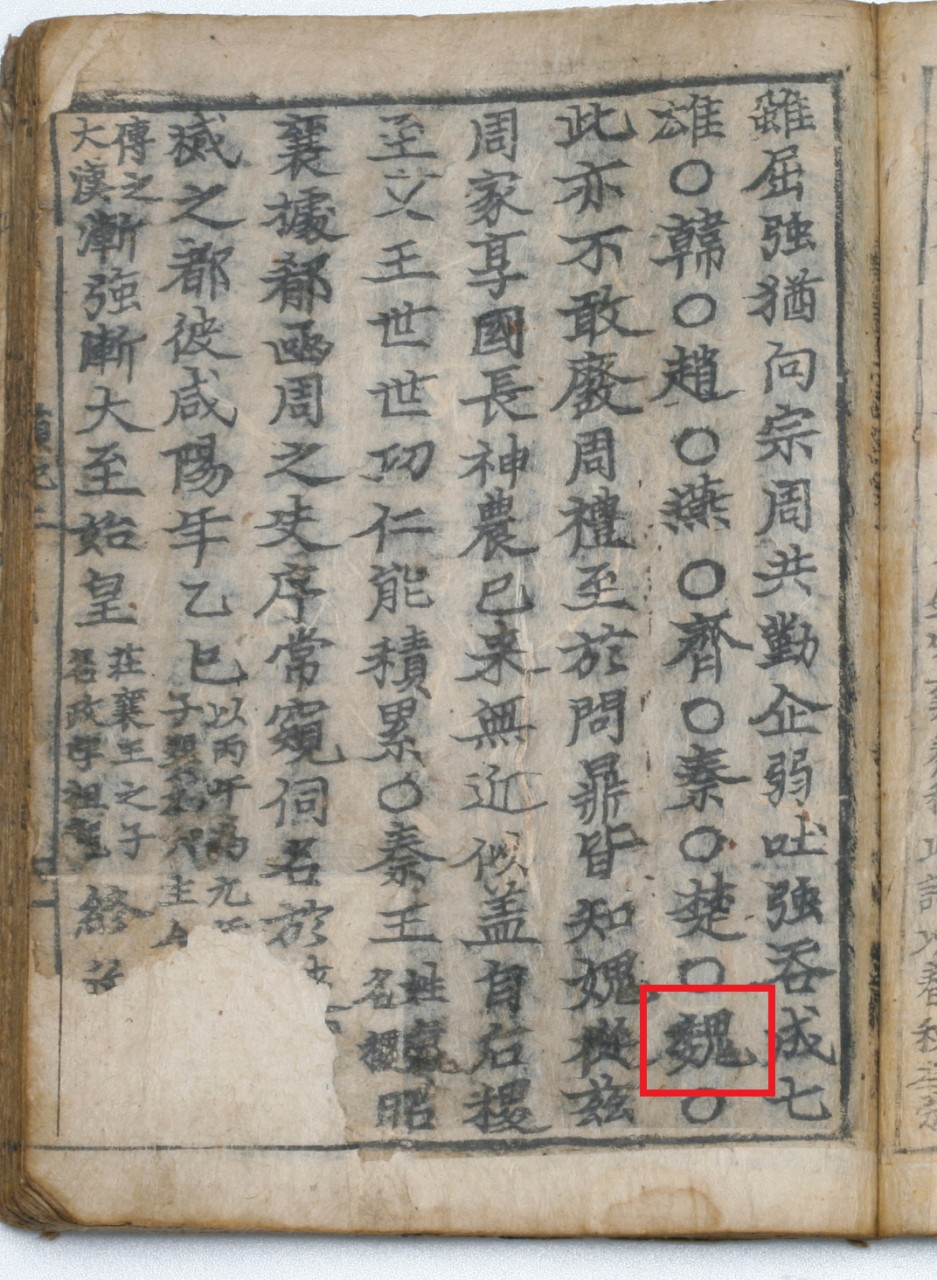 雖屈強猶向宗周共勤企弱吐強吞成七
雄○韓○趙○燕○齊○秦○楚○魏○
此亦不敢廢周禮至於問鼎皆知媿從玆
周家享國長神農已来無近似盖自后稷
至文王世世功仁能積累○秦王姓嬴名稷昭
襄據郁函周之失序常窺伺名於
滅之都彼咸陽年乙巳以丙午為元子
傳之大漢漸強漸大至始皇莊襄王之子名政終